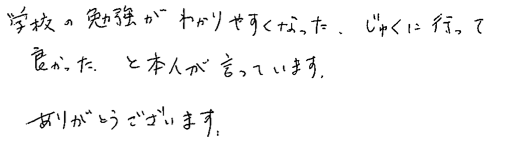 学校の勉強がわかりやすくなった、じゅくに行って
良かった、と本人が言っています。
ありがとうございます。